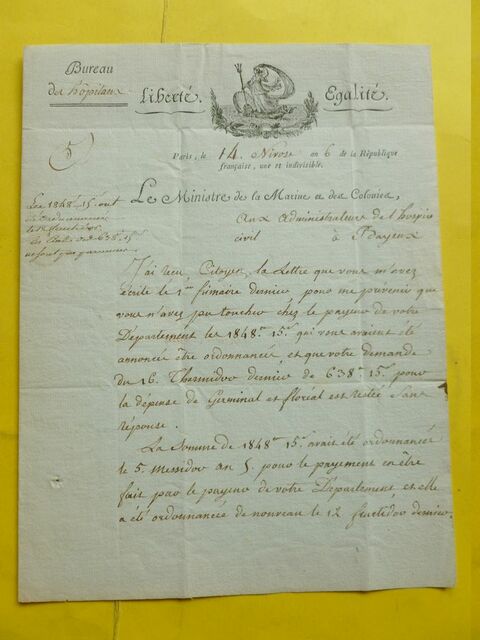 Bureau
des hôpitaux
Liberté. Egalité.
5
Paris, le 14. Nivôse an 6 de la République
française, une et indivisible.
Les 1848.tt 15.s ont
été
638.tt 15.s
Le Ministre de la Marine et des Colonies,
aux administrateurs de l'hospice
civil à Bayeux
J'ai reçu, Citoyens, la Lettre que vous m'avez
écrite le 1.er frimaire dernier pour me prévenir que
vous n'avez pu toucher chez le payeur de votre
Département les 1848.tt 15.s qui vous avaient été
annoncés être ordonnancés et que votre demande
du 16. Thermidor dernier de 638.tt 15.s pour
la dépense de Germinal et floréal est restée sans
réponse.
La Somme de 1848.tt 15.s avait été ordonnancée
le 5. Messidor an 5. pour le payement en être
fait par le payeur de votre Département et elle
a été ordonnancée de nouveau le 12 fructidor dernier.